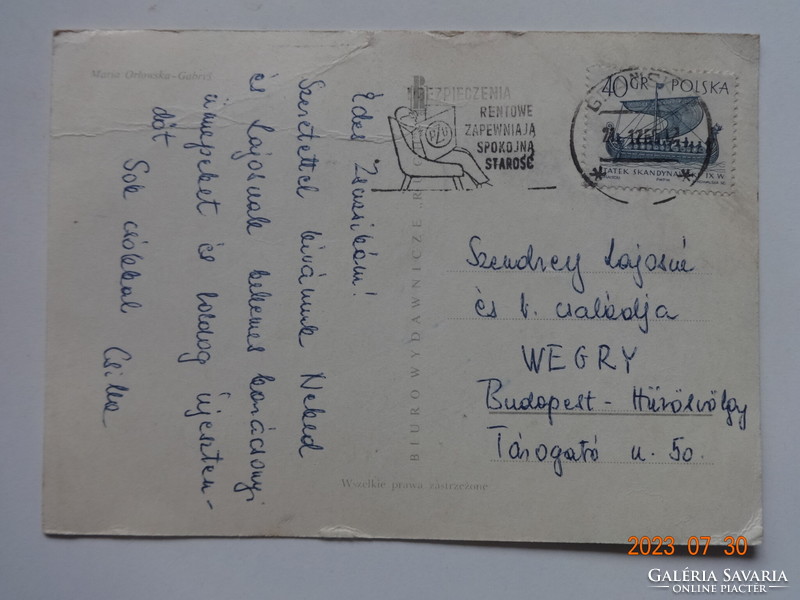 Marta Orłowska-Gabryś
Édes Zsuzsikám!
Szeretettel kívánunk Neked
és Lajosnak kellemes karácsonyi
ünnepeket és boldog újeszten-
dőt
Sok csókkal Csilla
BIURO WYDAWNICZE
Wszelkie prawa zastrzeżone
UBEZPIECZENIA
RENTOWE
ZAPEWNIAJĄ
SPOKOJNĄ
STAROŚĆ
PZU
40 GR POLSKA
STATEK SKANDYNAWSKI IX W.
Szendrey Lajosné
és k. családja
WEGRY
Budapest - Hűvösvölgy
Tárogató u. 50.
2023 07 30
GALÉRIA SAVARIA
ONLINE PIACTÉR